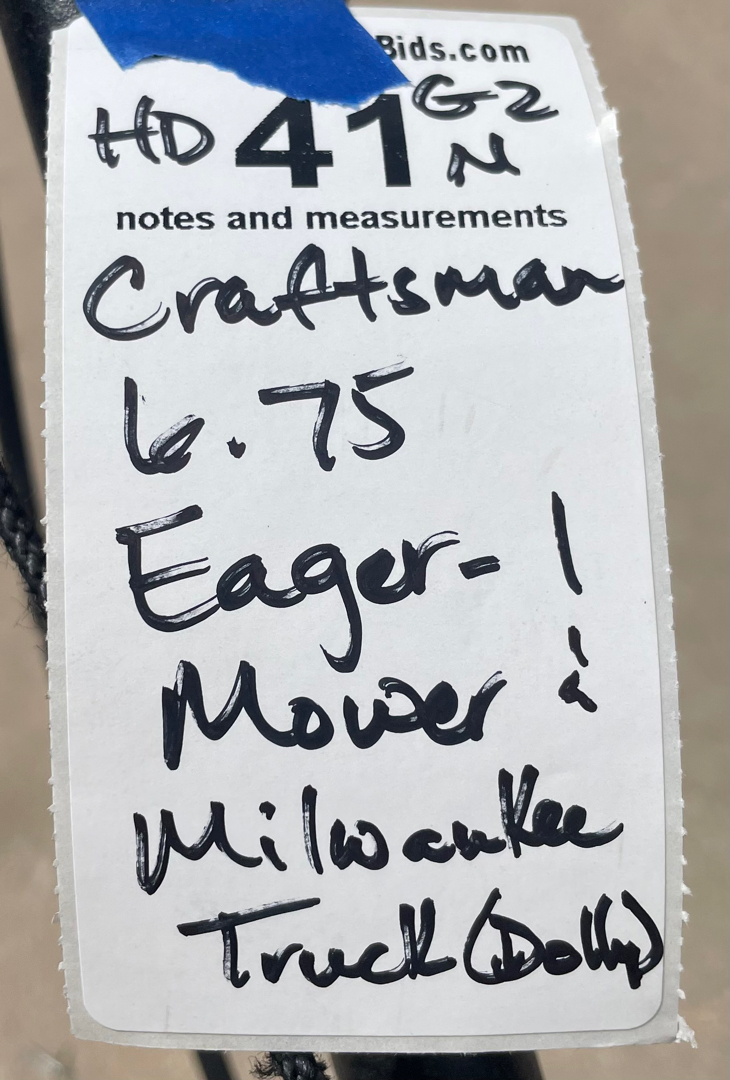 Bids.com
HD 41 G-2
N
notes and measurements
Craftsman
6.75
Eager-1
Mower &
Milwaukee
Truck (Dolly)